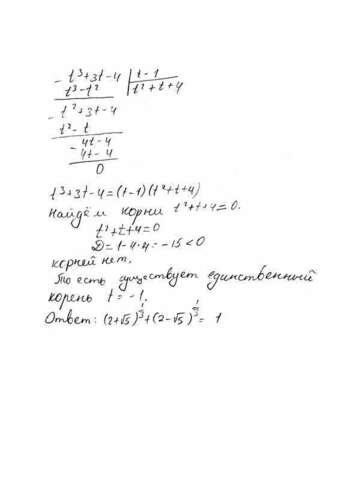 - t³+3t-4 | t-1
t³-t² | t²+t+4
- t²+3t-4
t²-t
- 4t-4
4t-4
0
t³+3t-4=(t-1)(t²+t+4)
Найдём корни t²+t+4=0.
t²+t+4=0
D=1-4·4=-15<0
корней нет.
То есть существует единственный
корень t=-1.
Ответ: (2+√5)^(1/3)+(2-√5)^(1/3)=1